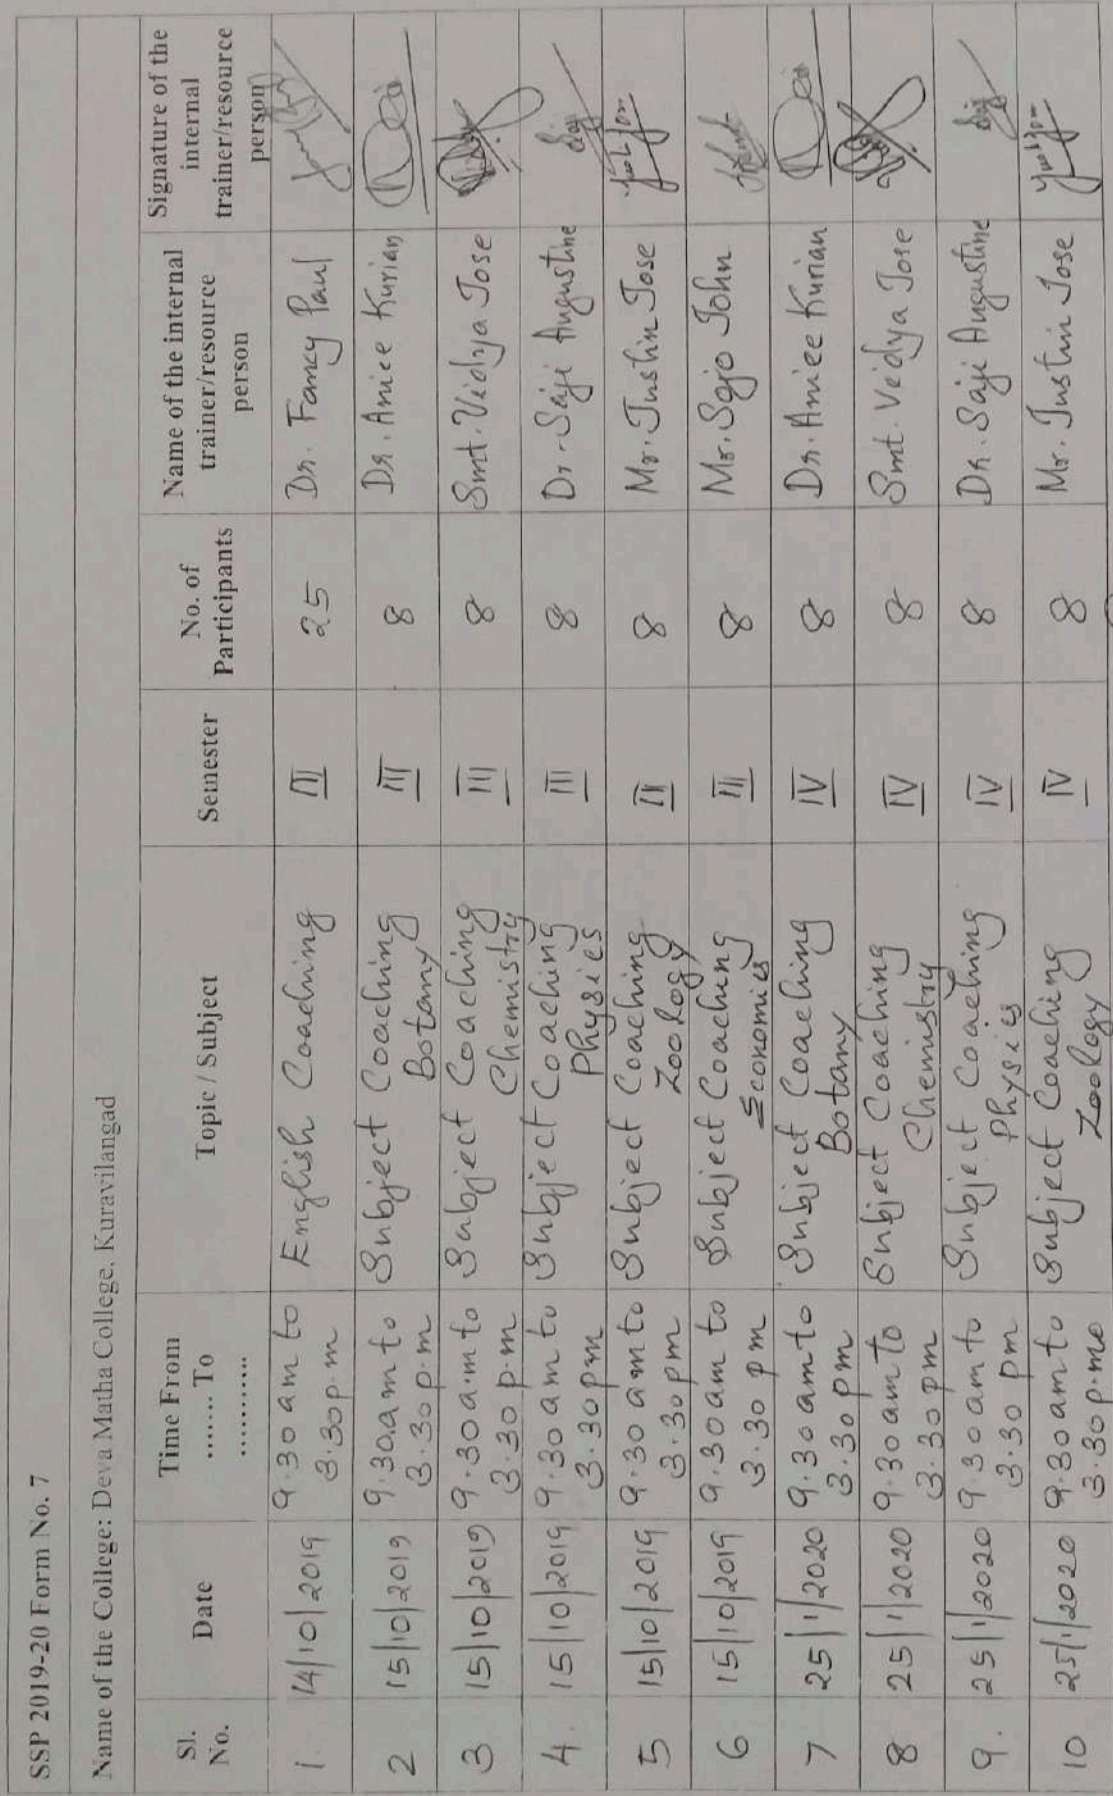 SSP 2019-20 Form No. 7
Name of the College: Deva Matha College, Kuravilangad
Sl. No. Date Time From ....... To .......... Topic / Subject Semester No. of Participants Name of the internal trainer/resource person Signature of the internal trainer/resource person
1. 14/10/2019 9.30 am to 3.30p.m English Coaching III 25 Dr. Fancy Paul
2 15/10/2019 9.30.am to 3.30 p.m Subject Coaching Botany III 8 Dr. Aniee Kurian
3 15/10/2019 9.30 a.m to 3.30 p.m Subject Coaching Chemistry III 8 Smt. Vidya Jose
4. 15/10/2019 9.30 am to 3.30 pm Subject Coaching Physics III 8 Dr. Saji Augustine
5 15/10/2019 9.30 am to 3.30 pm Subject Coaching Zoology III 8 Mr. Justin Jose
6 15/10/2019 9.30 am to 3.30 pm Subject Coaching Economics III 8 Mr. Sojo John
7 25/1/2020 9.30 am to 3.30 pm Subject Coaching Botany IV 8 Dr. Aniee Kurian
8 25/1/2020 9.30 am to 3.30 pm Subject Coaching Chemistry IV 8 Smt. Vidya Jose
9. 25/1/2020 9.30 am to 3.30 pm Subject Coaching Physics IV 8 Dr. Saji Augustine
10 25/1/2020 9.30 am to 3.30 p.m Subject Coaching Zoology IV 8 Mr. Justin Jose